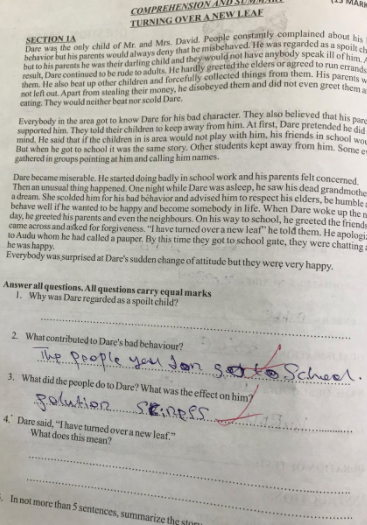 COMPREHENSION AND SUMMARY
TURNING OVER A NEW LEAF
SECTION 1A
Dare was the only child of Mr. and Mrs. David. People constantly complained about his
behavior but his parents would always deny that he misbehaved. He was regarded as a spoilt ch
but to his parents he was their darling child and they would not have anybody speak ill of him.
result, Dare continued to be rude to adults. He hardly greeted the elders or agreed to run errands
them. He also beat up other children and forcefully collected things from them. His parents w
not left out. Apart from stealing their money, he disobeyed them and did not even greet them a
eating. They would neither beat nor scold Dare.
Everybody in the area got to know Dare for his bad character. They also believed that his pare
supported him. They told their children to keep away from him. At first, Dare pretended he did
mind. He said that if the children in is area would not play with him, his friends in school wou
But when he got to school it was the same story. Other students kept away from him. Some e
gathered in groups pointing at him and calling him names.
Dare became miserable. He started doing badly in school work and his parents felt concerned.
Then an unusual thing happened. One night while Dare was asleep, he saw his dead grandmothe
a dream. She scolded him for his bad behavior and advised him to respect his elders, be humble
behave well if he wanted to be happy and become somebody in life. When Dare woke up the n
day, he greeted his parents and even the neighbours. On his way to school, he greeted the friends
came across and asked for forgiveness. "I have turned over a new leaf" he told them. He apologi
to Audu whom he had called a pauper. By this time they got to school gate, they were chatting
he was happy.
Everybody was surprised at Dare's sudden change of attitude but they were very happy.
Answer all questions. All questions carry equal marks
1. Why was Dare regarded as a spoilt child?
2. What contributed to Dare's bad behaviour?
The people you
to School.
3. What did the people do to Dare? What was the effect on him?
4. Dare said, "I have turned over a new leaf."
What does this mean?
In not more than 5 sentences, summarize the story